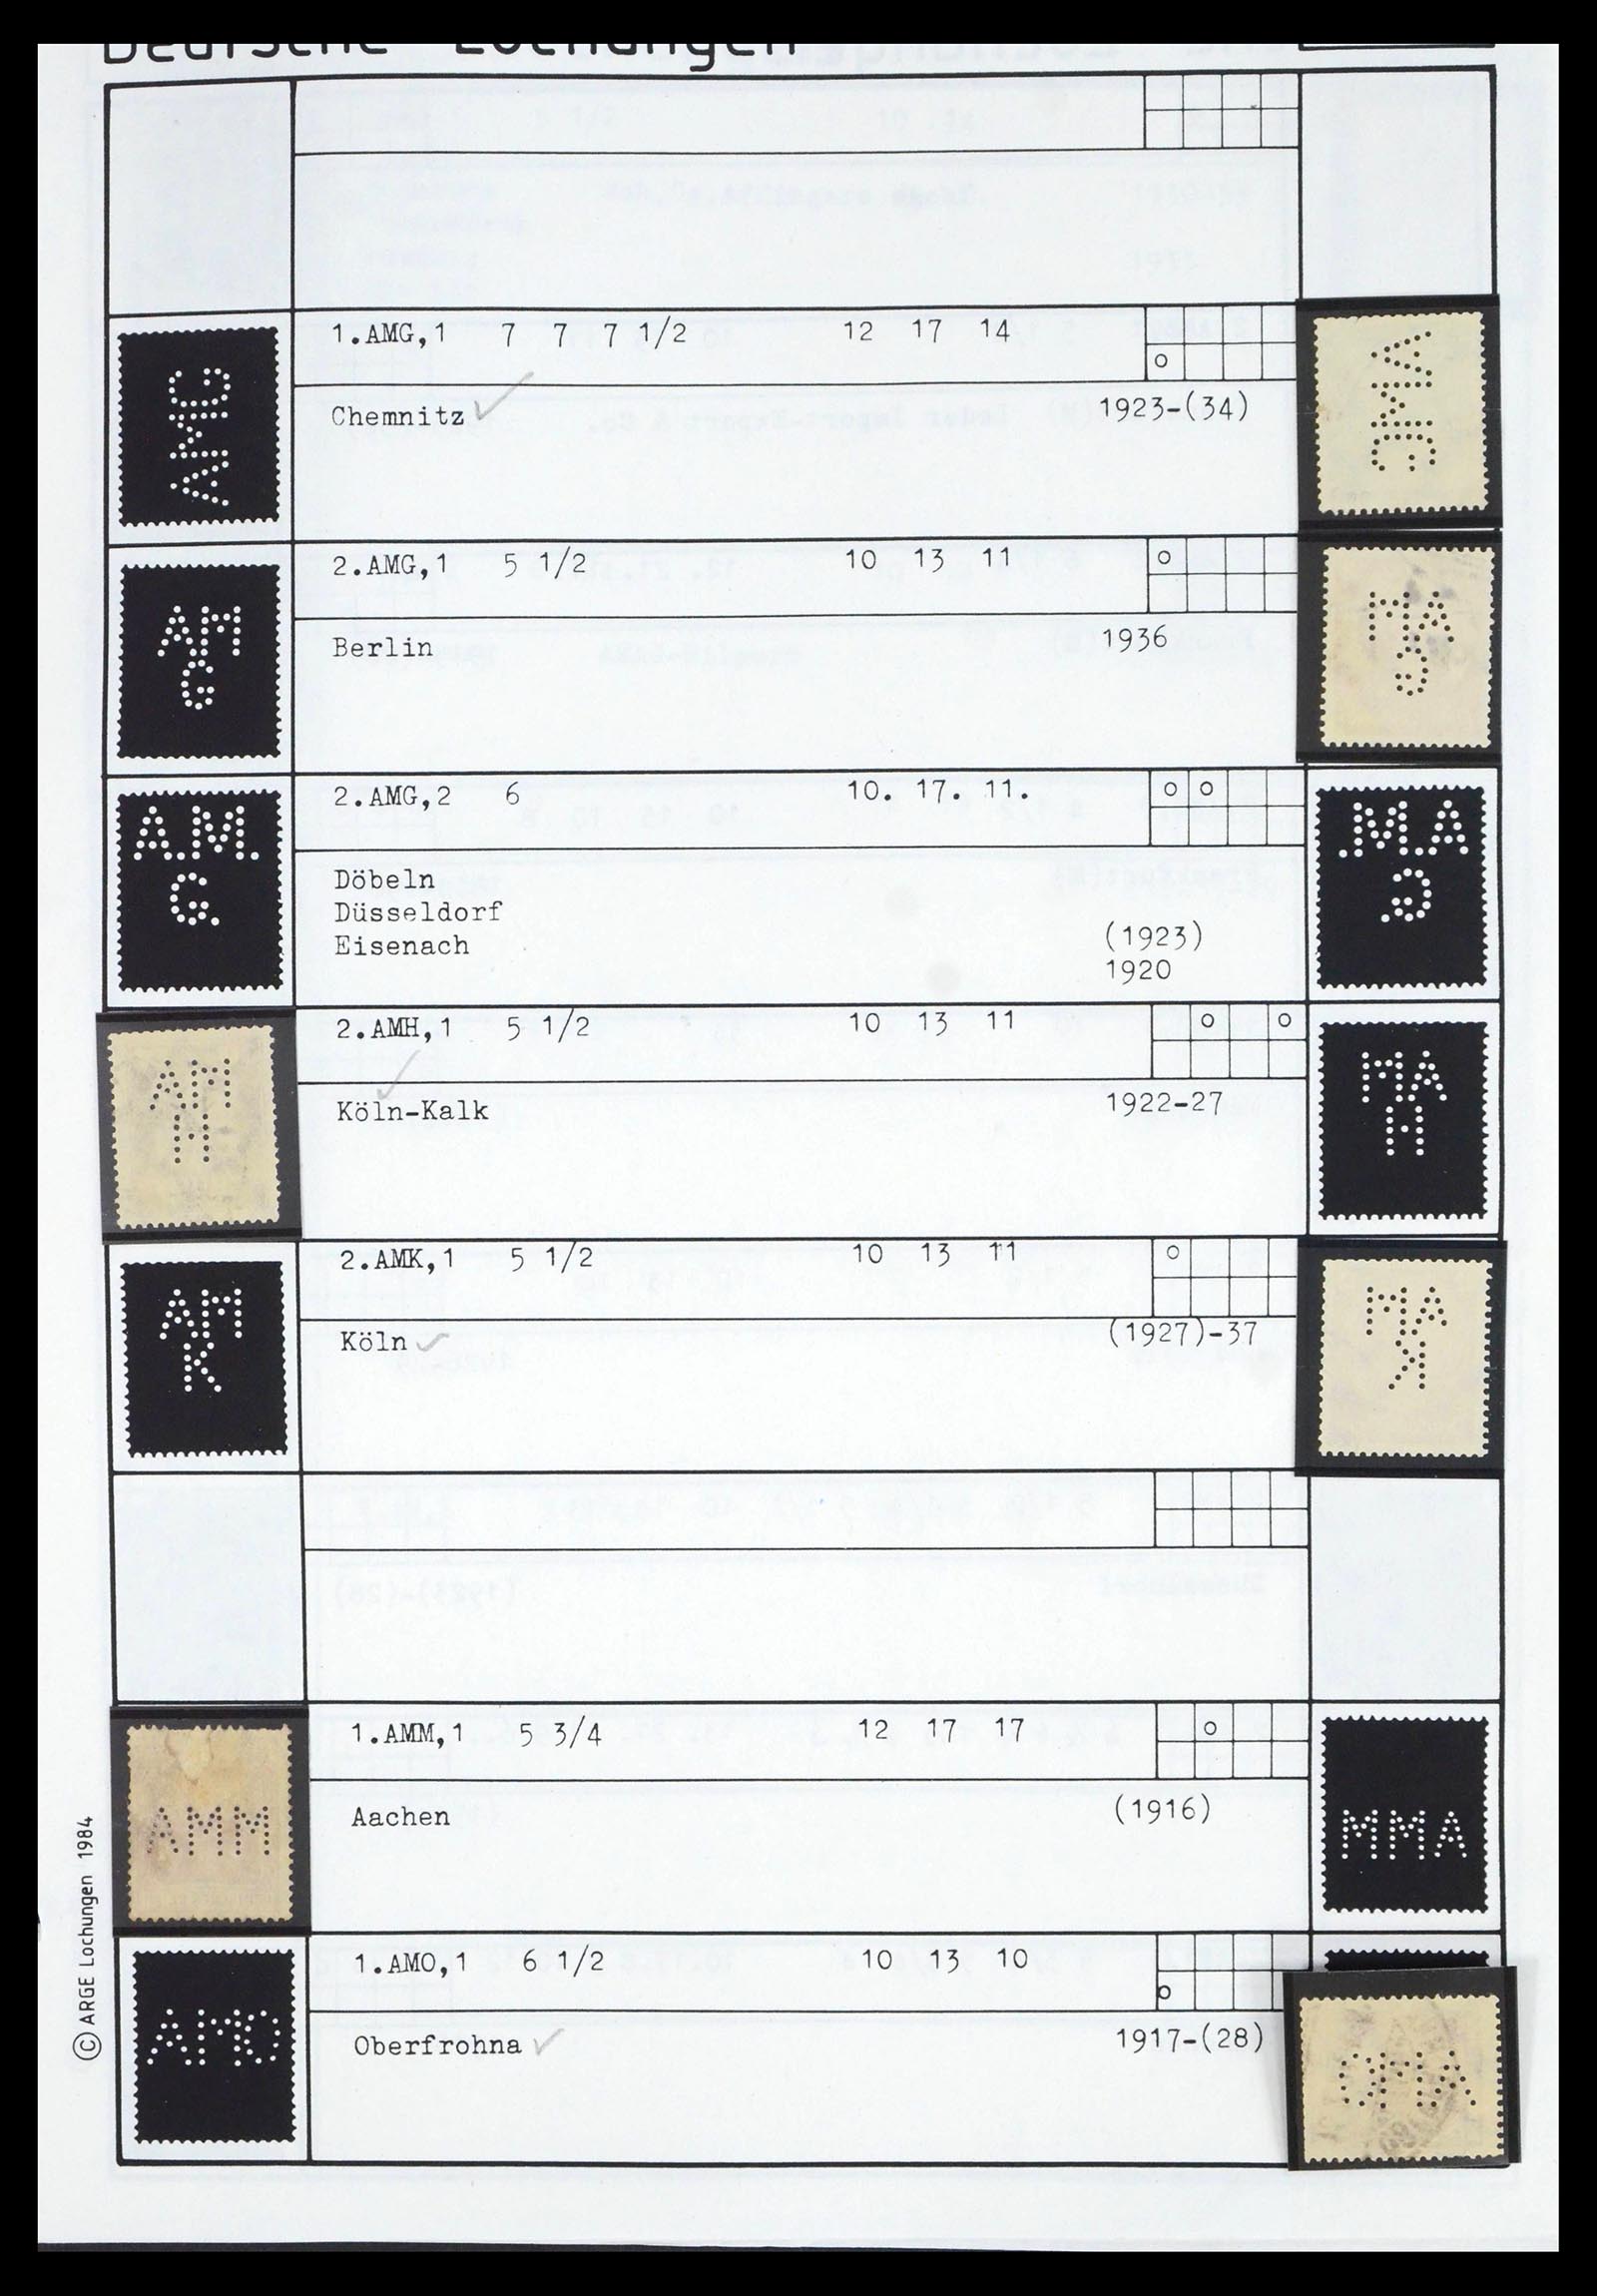 Deutsche Lochungen
1.AMG,1 7 7 7 1/2 12 17 14
Chemnitz 1923-(34)
AMG
AMG
2.AMG,1 5 1/2 10 13 11
Berlin 1936
AM
G
AM
G
2.AMG,2 6 10. 17. 11.
A.M.
G.
A.M.
G.
Döbeln
Düsseldorf
Eisenach (1923)
1920
2.AMH,1 5 1/2 10 13 11
Köln-Kalk 1922-27
AM
H
AM
H
2.AMK,1 5 1/2 10 13 11
Köln (1927)-37
AM
K
AM
K
1.AMM,1 5 3/4 12 17 17
Aachen (1916)
AMM
AMM
1.AMO,1 6 1/2 10 13 10
Oberfrohna 1917-(28)
AMO
AMO
© ARGE Lochungen 1984